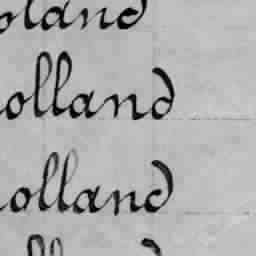 oland
olland
olland